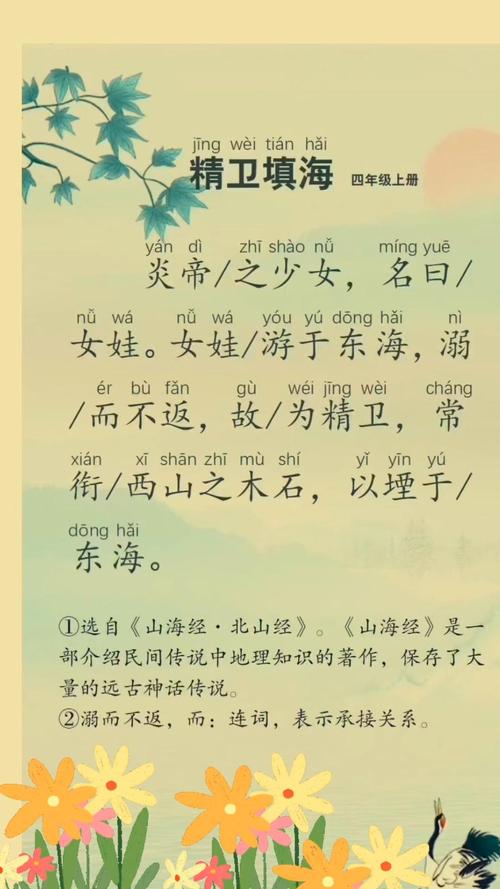 jīng wèi tián hǎi
精卫填海 四年级上册
yán dì zhī shào nǚ míng yuē
炎帝/之少女，名曰/
nǚ wá nǚ wá yóu yú dōng hǎi nì
女娃。女娃/游于东海，溺
ér bù fǎn gù wéi jīng wèi cháng
/而不返，故/为精卫，常
xián xī shān zhī mù shí yǐ yīn yú
衔/西山之木石，以堙于/
dōng hǎi
东海。
①选自《山海经·北山经》。《山海经》是一
部介绍民间传说中地理知识的著作，保存了大
量的远古神话传说。
②溺而不返，而：连词，表示承接关系。